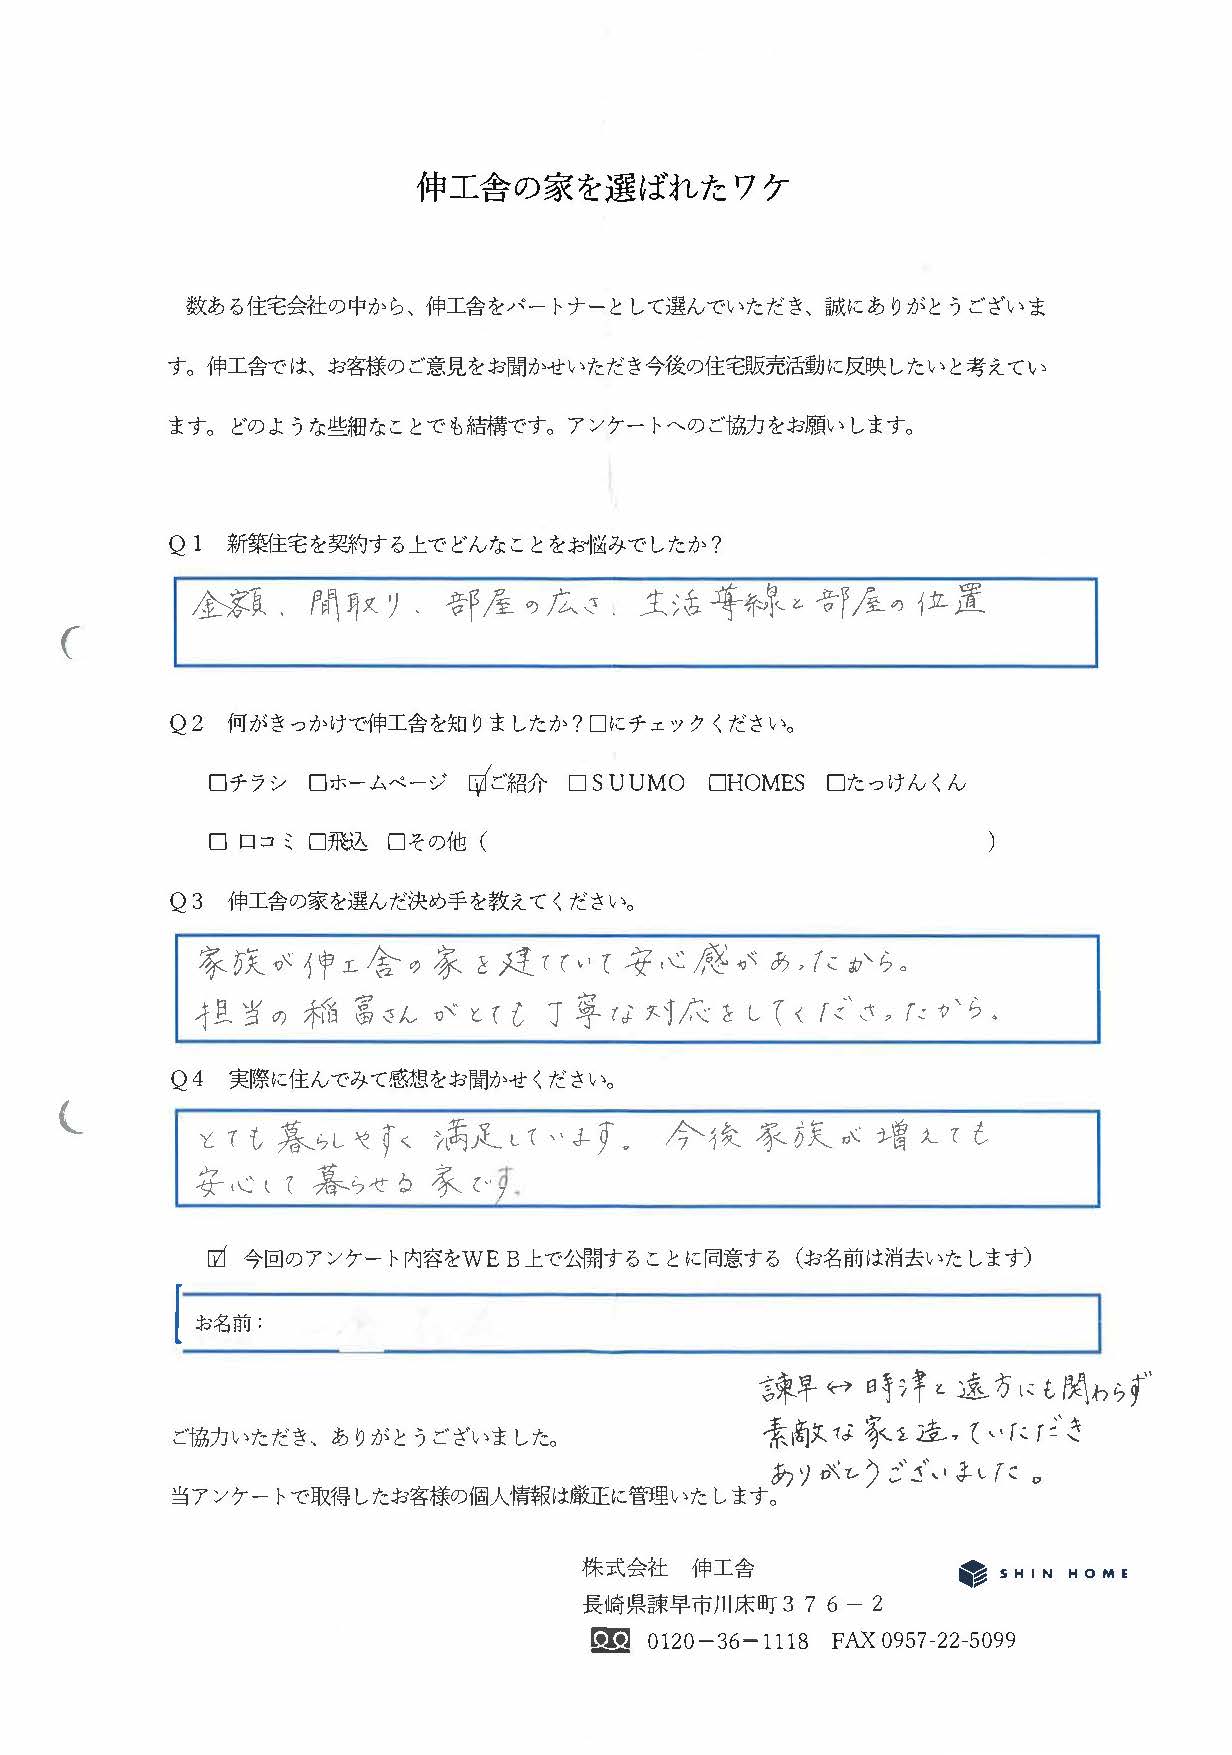 伸工舎の家を選ばれたワケ
数ある住宅会社の中から、伸工舎をパートナーとして選んでいただき、誠にありがとうございま
す。伸工舎では、お客様のご意見をお聞かせいただき今後の住宅販売活動に反映したいと考えてい
ます。どのような些細なことでも結構です。アンケートへのご協力をお願いします。
Q1 新築住宅を契約する上でどんなことをお悩みでしたか?
金額、間取り、部屋の広さ、生活導線と部屋の位置
Q2 何がきっかけで伸工舎を知りましたか?□にチェックください。
□チラシ □ホームページ ☑ご紹介 □SUUMO □HOMES □たっけんくん
□ 口コミ □飛込 □その他( )
Q3 伸工舎の家を選んだ決め手を教えてください。
家族が伸工舎の家を建てていて安心感があったから。
担当の稲富さんがとても丁寧な対応をしてくださったから。
Q4 実際に住んでみて感想をお聞かせください。
とても暮らしやすく満足しています。今後家族が増えても
安心して暮らせる家です。
☑ 今回のアンケート内容をWEB上で公開することに同意する(お名前は消去いたします)
お名前:
諫早↔時津と遠方にも関わらず
素敵な家を造っていただき
ありがとうございました。
ご協力いただき、ありがとうございました。
当アンケートで取得したお客様の個人情報は厳正に管理いたします。
株式会社 伸工舎
SHIN HOME
長崎県諫早市川床町376-2
0120-36-1118 FAX 0957-22-5099